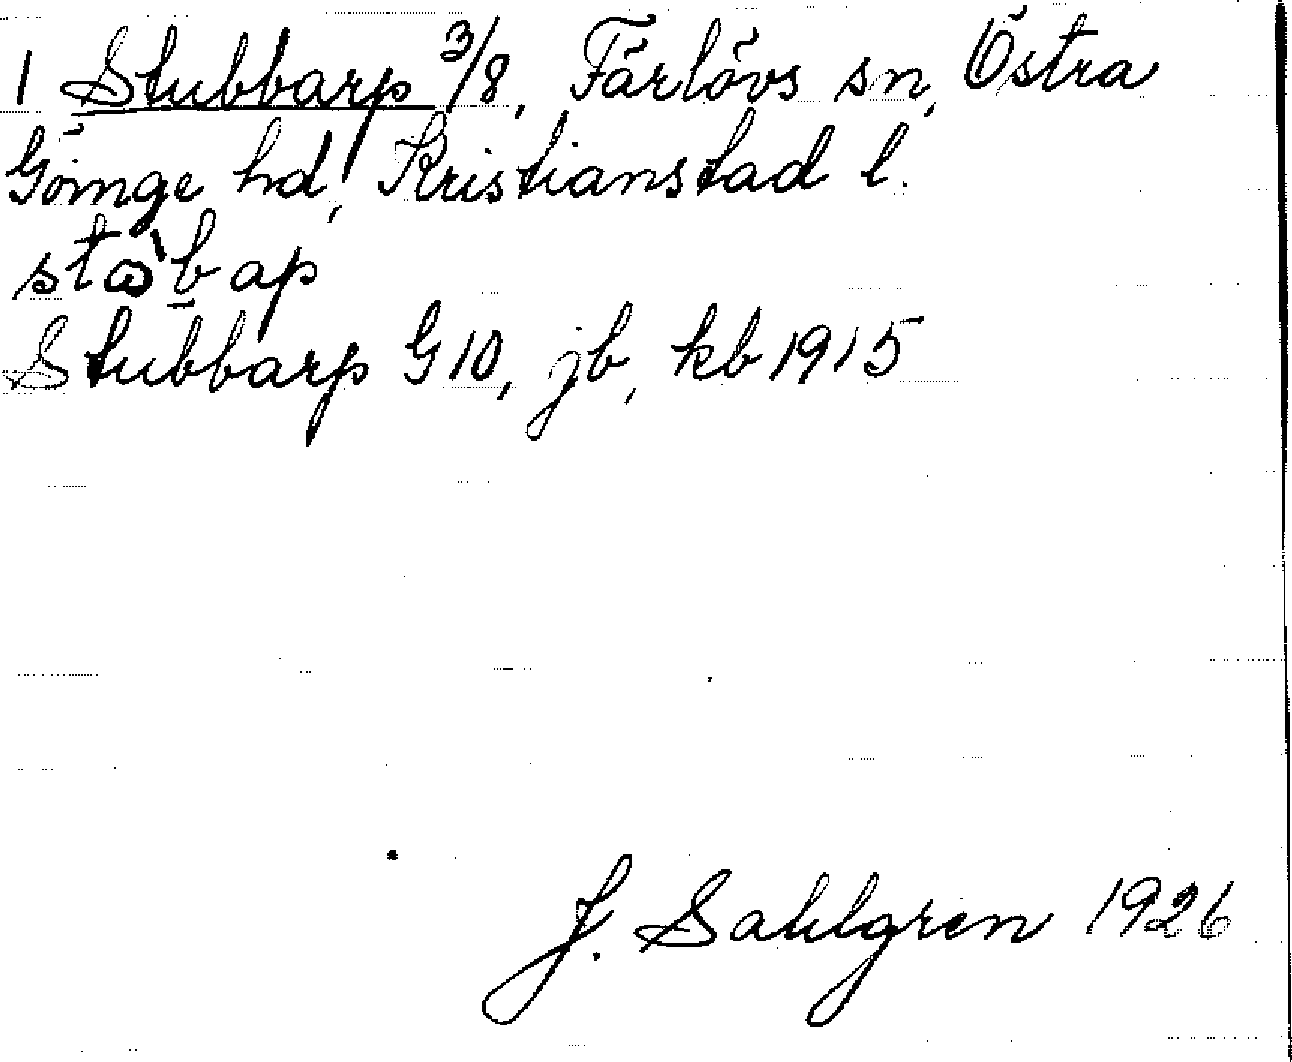 1 Stubbarp 3/8, Färlövs sn, Östra
Göinge hd, Kristianstad l.
sta̍b̲ap
Stubbarp G10, jb, kb 1915
J. Sahlgren 1926